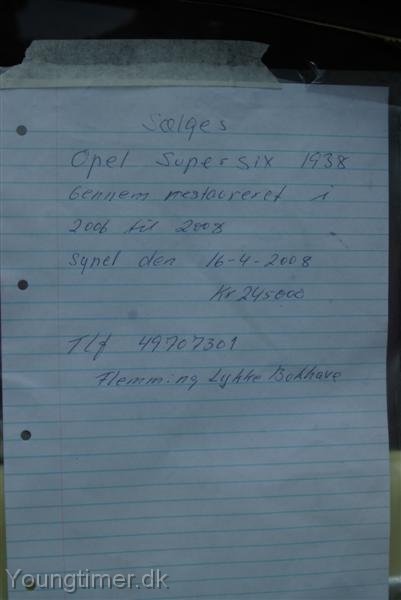 Sælges
Opel Super six 1938
Gennem restaureret i
2006 til 2008
Synet den 16-4-2008
Kr 245000
Tlf 49707301
Flemming Lykke Bakhave
Youngtimer.dk